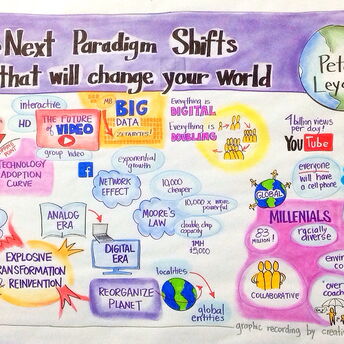 Next Paradigm Shifts
that will change your world
Peter
Leyd
interactive
HD
THE FUTURE
OF VIDEO
group video
MB
BIG
DATA
ZETABYTES!
Everything is
DIGITAL
Everything is
DOUBLING
4 billion views
per day!
YouTube
TECHNOLOGY
ADOPTION
CURVE
f
exponential
growth
NETWORK
EFFECT
10,000
cheaper
10,000 x more
powerful
MOORE'S
LAW
double chip
capacity
1MH
45,000
GLOBAL
everyone
will have
a cell phone
ANALOG
ERA
DIGITAL
ERA
MILLENIALS
83
MILLION!
racially
diverse
EXPLOSIVE
TRANSFORMATION
& REINVENTION
REORGANIZE
PLANET
localities
global
entities
COLLABORATIVE
enviro
co
over
coach
graphic recording by creati